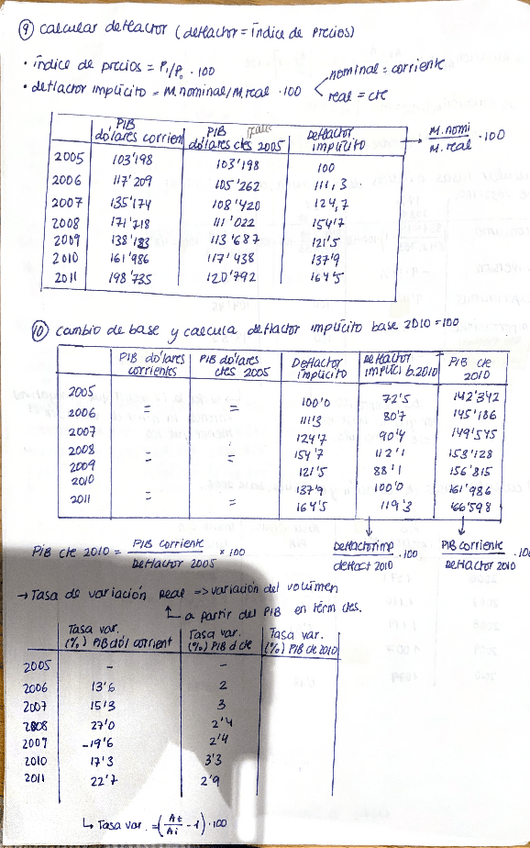 ⑨ calcular deflactor (deflactor = índice de precios)
• índice de precios = P₁/P₀ · 100
• deflactor implícito = M.nominal/M.real · 100
nominal = corriente
real = cte
PIB dólares corrient | PIB dólares ctes 2005 | Deflactor implícito → M.nomi / M.real · 100
2005 103'198 103'198 100
2006 117'209 105'262 111,3
2007 135'174 108'420 124,7
2008 171'718 111'022 154'7
2009 138'183 113'687 121'5
2010 161'986 117'438 137'9
2011 198'735 120'792 164'5
⑩ cambio de base y calcula deflactor implícito base 2010=100
PIB dólares corrientes | PIB dólares ctes 2005 | Deflactor implícito | Deflactor implíci b.2010 | PIB cte 2010
2005 100'0 72'5 142'342
2006 = = 111'3 80'7 145'186
2007 124'7 90'4 149'545
2008 = = 154'7 112'1 153'128
2009 121'5 88'1 156'815
2010 137'9 100'0 161'986
2011 = = 164'5 119'3 166'598
PIB cte 2010 = PIB corriente / Deflactor 2005 × 100
Deflactor imp / deflact 2010 · 100
PIB corriente / Deflactor 2010 · 100
→ Tasa de variación real => variación del volumen
↳ a partir del PIB en térm ctes.
Tasa var. (%) PIB dól corrient | Tasa var. (%) PIB d cte | Tasa var. (%) PIB cte 2010
2005 – –
2006 13'6 2
2007 15'3 3
2008 27'0 2'4
2009 -19'6 2'4
2010 17'3 3'3
2011 22'7 2'9
↳ Tasa var. = (At / Ai - 1) · 100